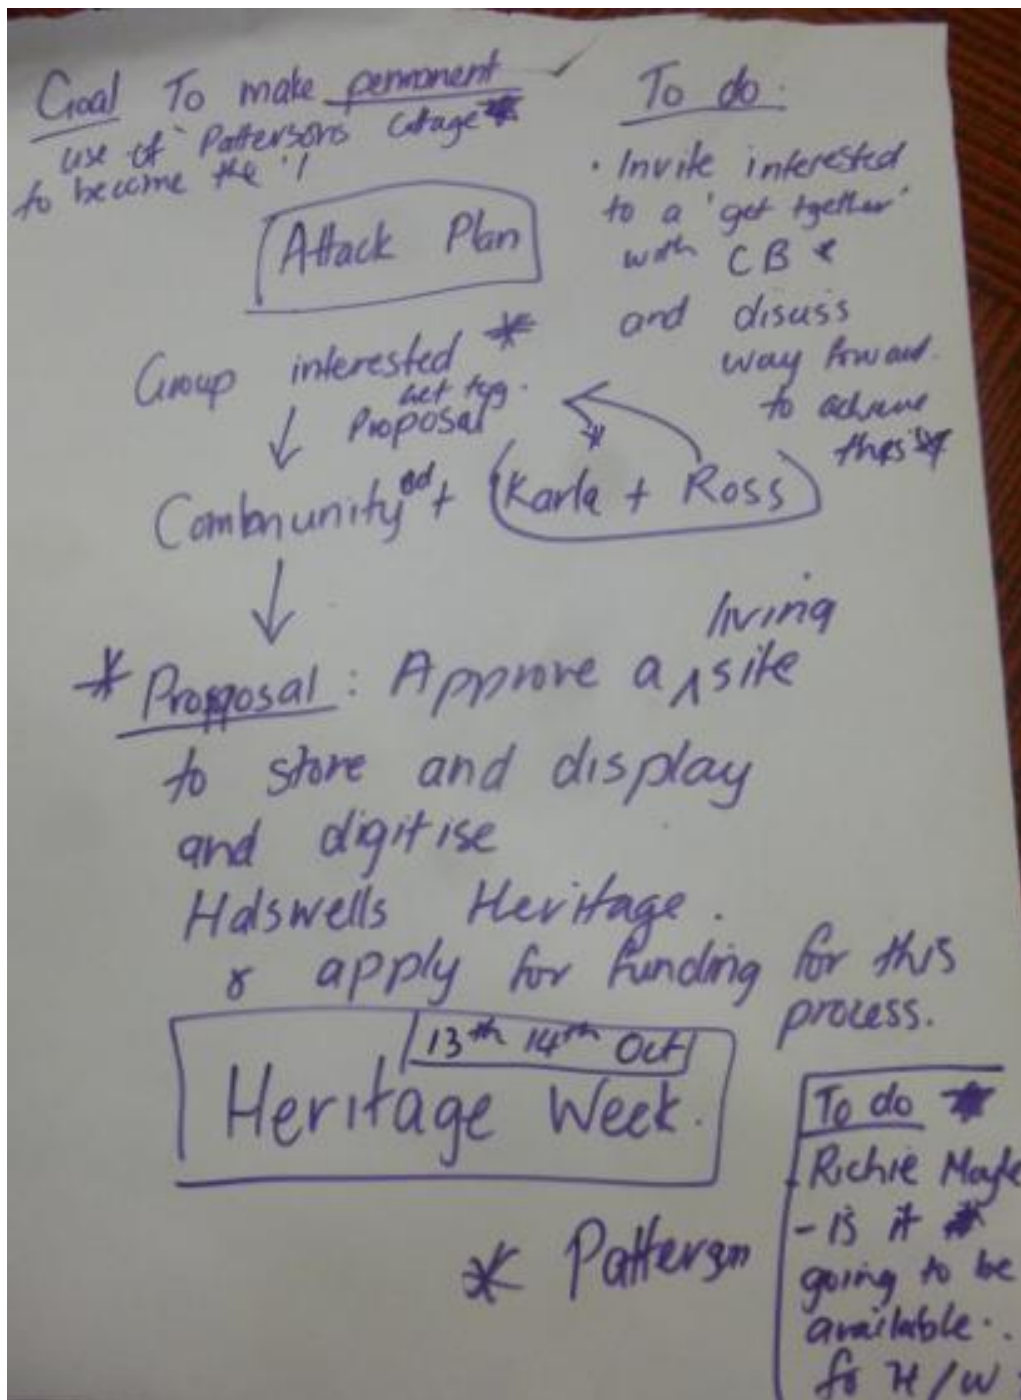 Goal To make permanent
use of Pattersons Cottage
to become the "!
Attack Plan
Group interested
Get tog.
Proposal
Community Bd + (Karla + Ross)
* Proposal : Approve a living site
to store and display
and digitise
Halswells Heritage.
& apply for funding for this
process.
13th 14th Oct
Heritage Week.
* Patterson
To do.
· Invite interested
to a 'get together'
with CB *
and disuss
way forward.
to achieve
this *
To do *
- Richie
- is it
going to be
available.
for H/W